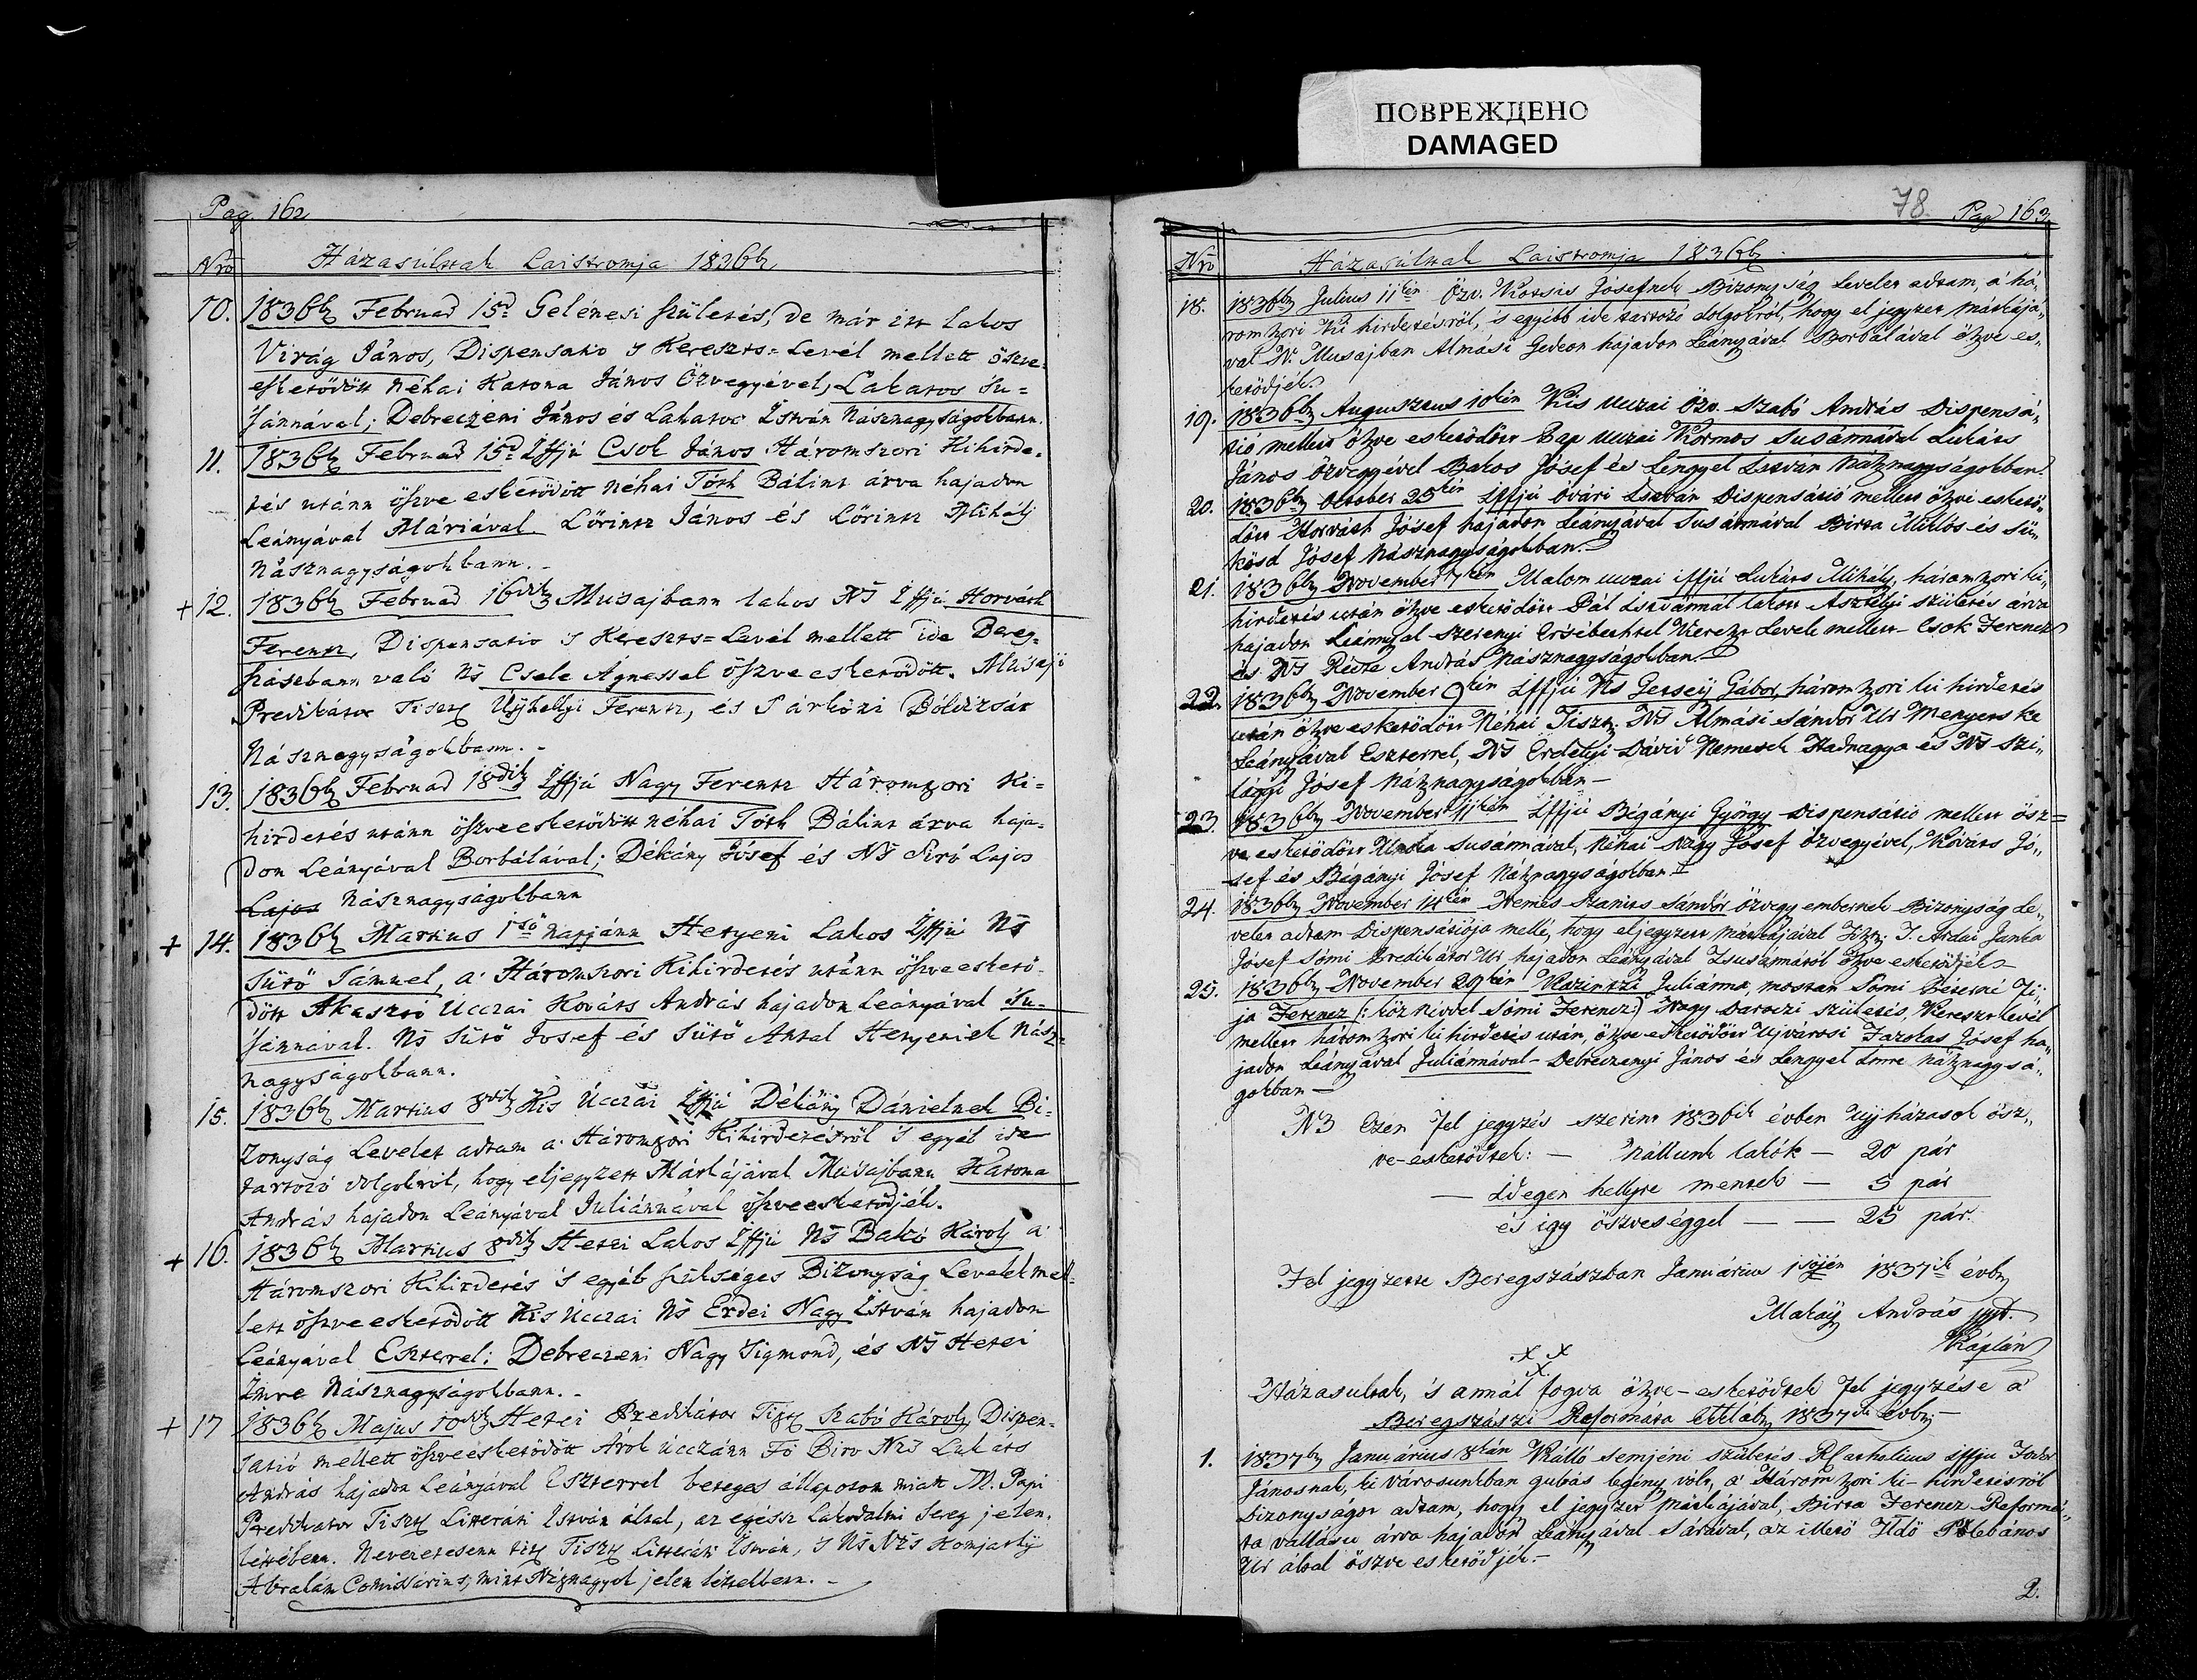 ПОВРЕЖДЕНО
DAMAGED
Pag. 162
Nrō Házasúltak Laistromja 1836b.
10. 1836b. Februad 15d. Gelénesi születés, de már itt lakos
Virág János, Dispensatio 's Kereszt-Levél mellett öszve
esketödött néhai Katona János Özvegyével, Lakatos Su-
sánnával; Debreczeni János és Lakatos István Násznagyságokbann.
11. 1836b. Februad 15d. Iffjú Csok János Háromszori Kihirde-
tés utánn öszve esketödött néhai Tóth Bálint árva hajadon
Leányával Máriával Lörintz János és Lörintz Mihály
Násznagyságokbann.-
+ 12. 1836b. Februad 16dik Musajbann lakos Ns Iffjú Horváth
Ferentz, Dispensatio 's Kereszt-Levél mellett ide Bereg-
szászbann való Ns Csele Ágnessel öszveesketödött. Musaji
Predikátor Tiszt. Ujhellyi Ferentz, és Sárközi Boldizsár
Násznagyságokbann.-
13. 1836b. Februad 18dik Iffjú Nagy Ferentz Háromszori Ki-
hirdetés utánn öszveesketödött néhai Tóth Bálint árva haja-
don Leányával Borbálával; Dékány Jósef és Ns Siró Lajos
Lajos Násznagyságokbann
+ 14. 1836b. Martius 1ső napjánn Hetyeni Lakos Iffjú Ns
Sütö Sámuel, a' Háromszori Kihirdetés utánn öszveesketö-
dött Akasztó Uczai Kováts András hajadon Leányával Su-
sánnával. Ns Sütö Josef és Sütö Antal Hetyeniek Nász-
nagyságokbann.
15. 1836b. Martius 8dik Kis Uczai Iffjú Dékány Dánielnek Bi-
zonyság Levelet adtam a' Háromszori Kihirdetésröl 's egyéb ide
tartozó dolgokról, hogy eljegyzett Mátkájával Musajbann Katona
András hajadon Leányával Juliánnával öszveesketödjék.
+ 16. 1836b. Martius 8dik Hetei Lakos Iffjú Ns Bakó Károly a'
Háromszori Kihirdetés 's egyéb szükséges Bizonyság Levelek mel-
lett öszveesketödött Kis Uczai Ns Erdei Nagy István hajadon
Leányával Eszterrel; Debreczeni Nagy Sigmond, és Ns Hetei
Imre Násznagyságokbann.-
+ 17 1836b. Majus 10dik Hetei Predikátor Tiszt. Szabó Károly, Dispen-
satió mellett öszveesketödött Árok Uczánn Fö Biro Nzs Lukáts
András hajadon Leányával Eszterrel beteges állapotom miatt M. Papi
Predikator Tiszt. Litteráti István által, az egész Lakodalmi Sereg jelen-
létébenn. Nevezetesenn Tiszt. Litteráti István, 's Ns Nzs Komjathy
Abralám Comissárius, mint Násznagyok jelen létekbenn.-
78. Pag 163.
Nrō Házasúltak Laistromja 1836b.
18. 1836b. Julius 11kén Özv. Kotsis Jósefnek Bizonyság levelet adtam, a' há-
romszori ki hirdetésröl, 's egyébb ide tartozó dolgokról, hogy el jegyzet mátkájá-
val N. Musajban Almási Gedeon hajadon Leányával Borbálával öszve es-
ketödjék.
19. 1836b. Augusztus 10kén Kis uczai Özv. Szabó András Dispensá-
tió mellett öszve esketödött Bap uczai Kormos Susánnával Lukáts
János özvegyével Bakos Jósef és Lengyel István Násznagyságokban.
20. 1836b. October 25kén Iffjú Óvári István Dispensátió mellett öszve esketö-
dött Horváth Jósef hajadon Leányával Susánnával Birta Miklós és Sü-
kösd Jósef Násznagyságokban.
21. 1836b. November 7kén Malom uczai iffjú Lukáts Mihály, háromszori ki-
hirdetés után öszve esketödött Pál Istvánnál lakott Asztélyi születés árva
hajadon Leánnyal Szerenyi Ersébethtel Kereszt Levele mellett Csok Ferencz
és Ns Récze András Násznagyságokban.
22. 1836b. November 9kén Iffjú Ns Getseÿ Gábor, háromszori ki hirdetés
után öszve esketödött Néhai Tiszt. Ns Almási Sándor Ur Menyetske
Leányával Eszterrel, Ns Erdélyi Dávid Nemesek Hadnagya és Ns Szi-
lágyi Jósef Násznagyságokban –
23. 1836b. November 11kén Iffjú Bégányi György Dispensátió mellett ösz=
ve esketödött Susánnával, Néhai Nagy Jósef özvegyével, Kováts Jó-
sef és Bégányi Jósef Násznagyságokban
24. 1836b. November 14kén Nemes Stanits Sándor özvegy embernek Bizonyság le-
velet adtam Dispensátiója mellé, hogy eljegyzett mátkájával Tiszt. T. Ardai Janka
Jósef Sómi Predikátor Ur hajadon Leányával Zsusánnával öszve esketödjék
25. 1836b. November 29kén Kazintzi Juliánna, mostan Sómi Péterné Fi-
ja Ferencz (: köz névvel Sómi Ferencz:) Nagy Daroczi születés, Kereszt levél
mellett három szori ki hirdetés után, öszve esketödött Ujvárosi Fazekas Jósef ha-
jadon Leányával Juliánnával – Debreczenyi János és Lengyel Imre násznagysá-
gokban –
NB Ezen fel jegyzés szerint 1836ik évben Ujj házasok ösz-
ve-esketödtek: – Nállunk lakók – 20 pár
– Idegen hellyre mentek – 5 pár
és igy öszveséggel – – 25 pár.
Fel jegyzette Beregszászban Januárius 1söjén 1837ik évb.
Makay András
Káplán
X X
X
Házasultak, 's annál fogva öszve-esketödtek fel jegyzése a'
Beregszászi Reformáta Ekklában 1837ik évb.–
1. 1837b. Januárius 8kán Kálló Semjéni születés R Catholicus iffju Fodor
Jánosnak, ki városunkban gubás legény vólt, a' Három szori ki-hirdetésröl
bizonyságot adtam, hogy el jegyzet mátkájával, Birta Ferencz Reformá-
ta vallásu árva hajadon Leányával Sárával, az illetö Fdö Plébános
Ur által öszve esketödjék.–
2.